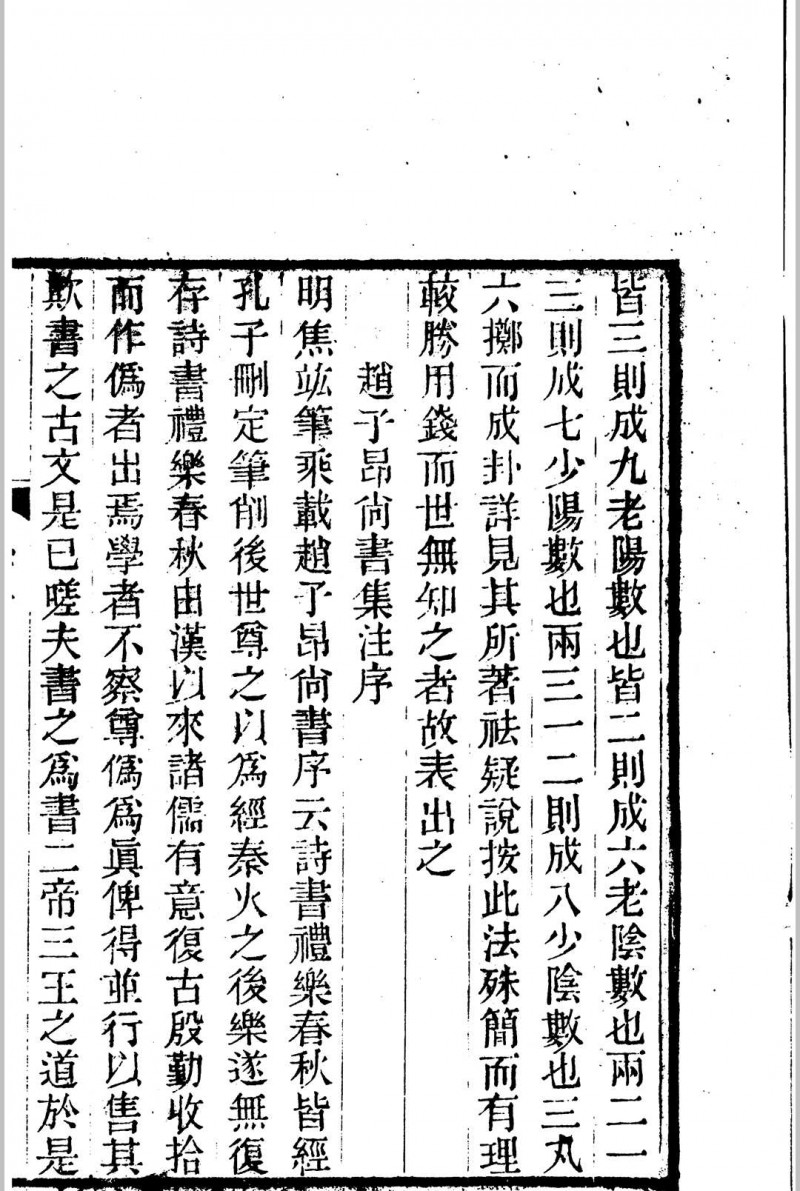 皆三則成九老陽數也皆二則成六老陰數也兩二一
三則成七少陽數也兩三一二則成八少陰數也三丸
六擲而成卦詳見其所著祛疑說按此法殊簡而有理
較勝用錢而世無知之者故表出之
趙子昂尙書集注序
明焦竑筆乘載趙子昂尙書序云詩書禮樂春秋皆經
孔子刪定筆削後世尊之以爲經秦火之後樂遂無復
存詩書禮樂春秋由漢以來諸儒有意復古殷勤收拾
而作僞者出焉學者不察尊僞爲眞俾得並行以售其
欺書之古文是已嗟夫書之爲書二帝三王之道於是